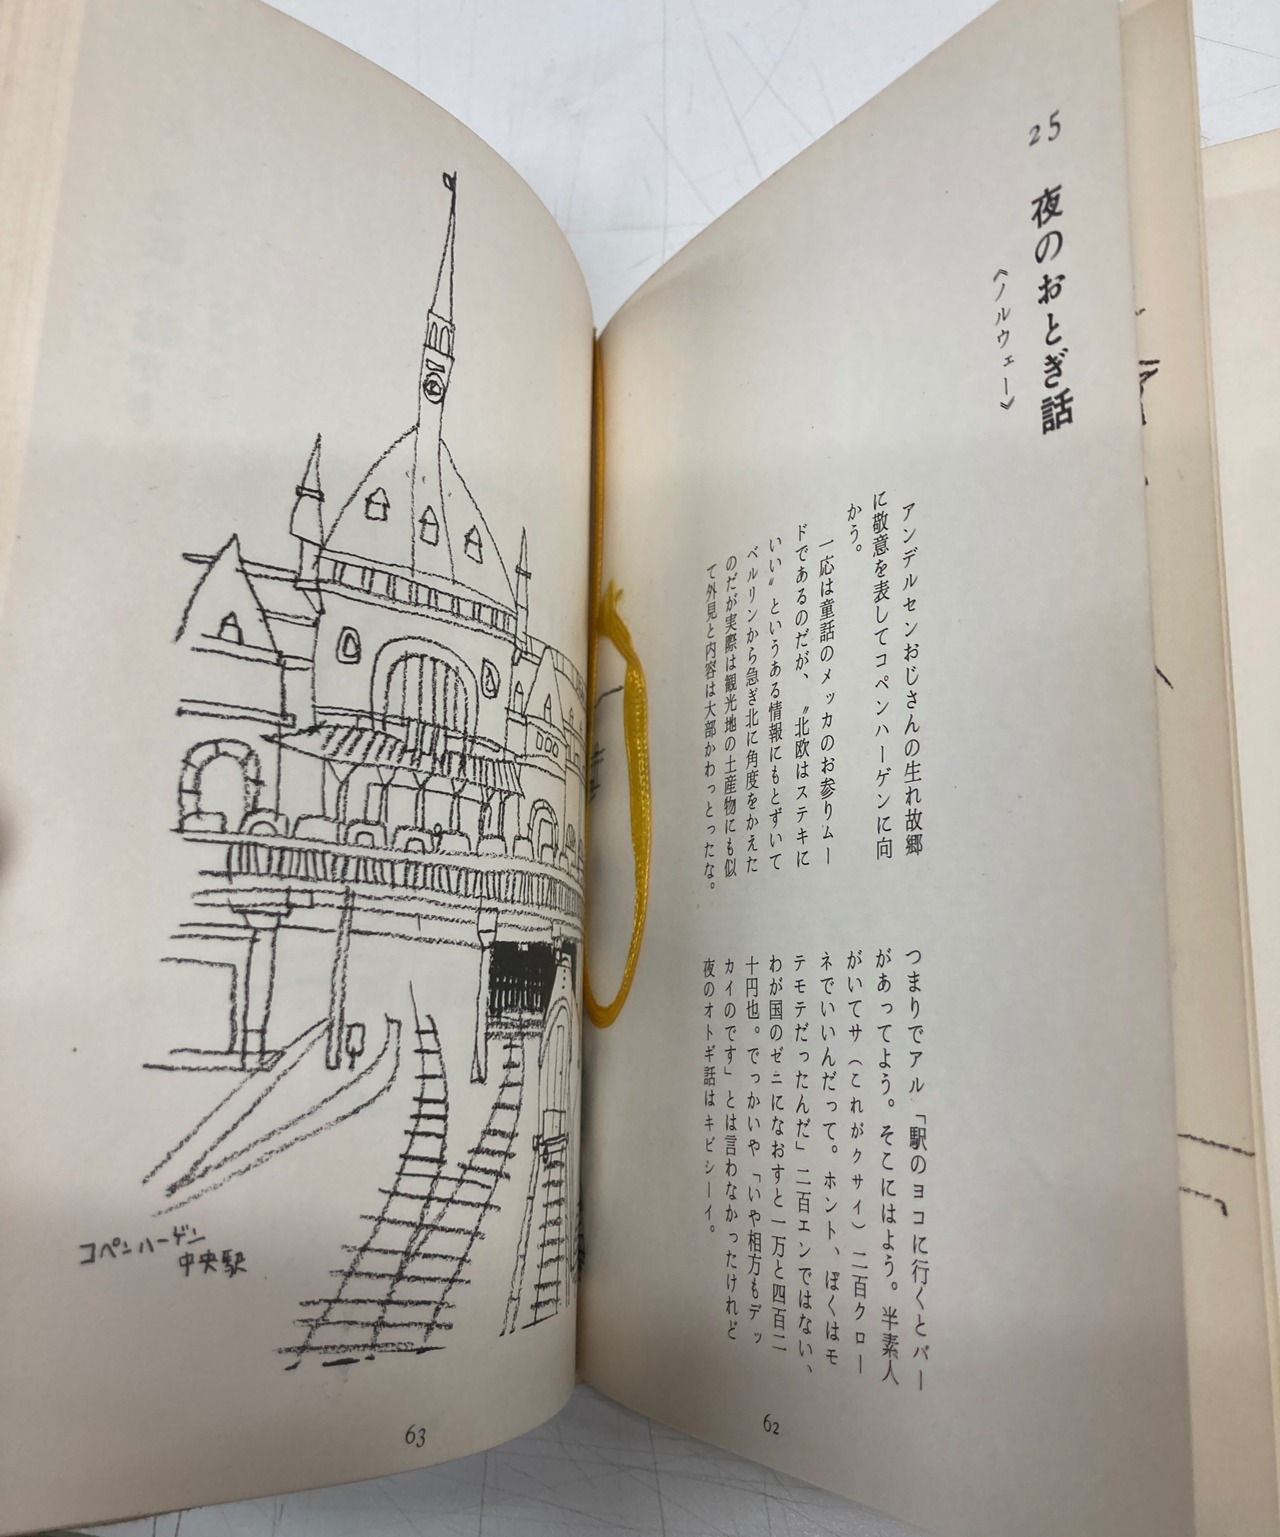 25
夜のおとぎ話
《ノルウェー》
アンデルセンおじさんの生れ故郷
に敬意を表してコペンハーゲンに向
かう。
一応は童話のメッカのお参りムー
ドであるのだが、〝北欧はステキに
いい〟というある情報にもとずいて
ベルリンから急ぎ北に角度をかえた
のだが実際は観光地の土産物にも似
て外見と内容は大部かわっとったな。
つまりでアル「駅のヨコに行くとバー
があってよう。そこにはよう。半素人
がいてサ（これがクサイ）二百クロー
ネでいいんだって。ホント、ぼくはモ
テモテだったんだ」二百エンではない、
わが国のゼニになおすと一万と四百二
十円也。でっかいや「いや相方もデッ
カイのです」とは言わなかったけれど
夜のオトギ話はキビシーイ。
62
コペンハーゲン
中央駅
63